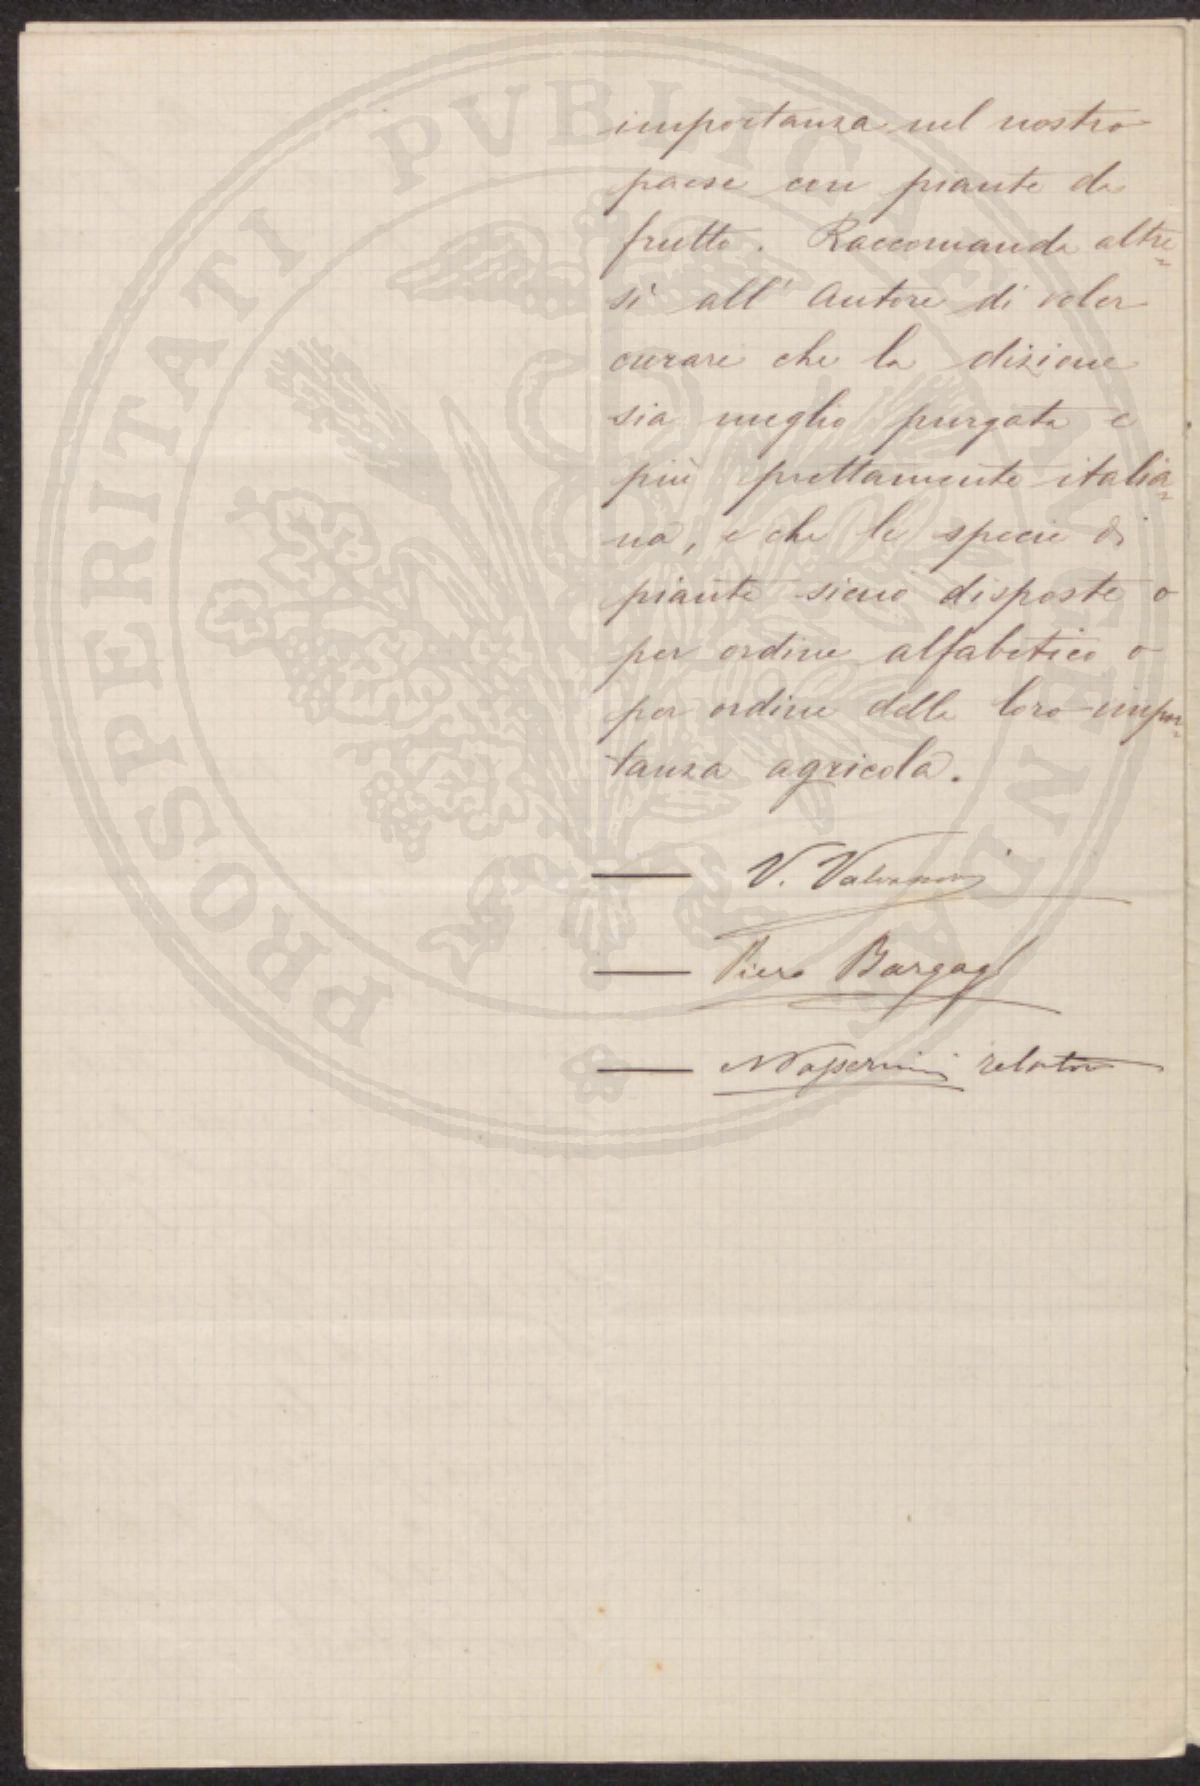 importanza nel nostro
paese con piante da
frutto. Raccomanda altre=
sì all' Autore di voler
curare che la dizione
sia meglio purgata e
più prettamente italia=
na, e che le specie di
piante sieno disposte o
per ordine alfabetico o
per ordine della loro impor=
tanza agricola.
— V.
— Piero Bargagli
— relatore
PROSPERITATI PVBLICAE AVGENDAE